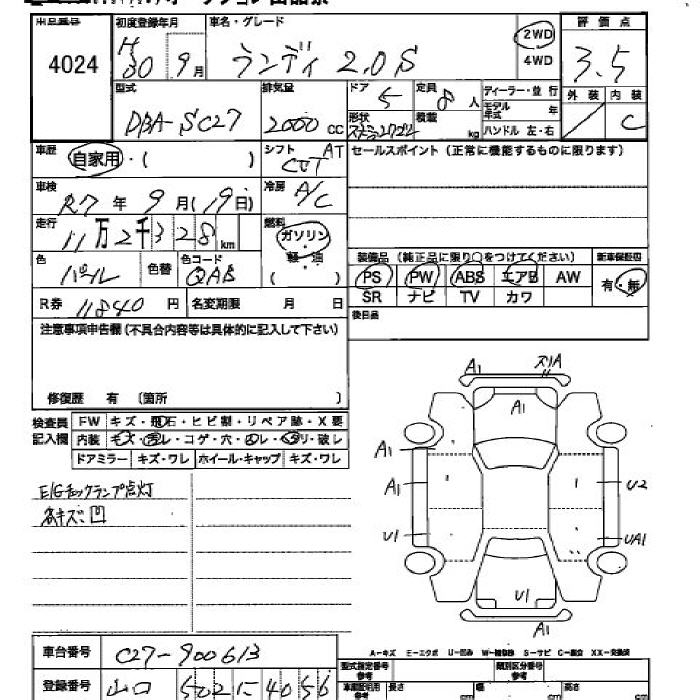 4024
初度登録年月
H30 9月
車名・グレード
ランディ 2.0S
2WD
4WD
評価点
3.5
外装 内装
C
型式
DBA-SC27
排気量
2000 CC
ドア
5
定員
8 人
形状
積載
kg
ディーラー・並行
モデル年式
年
ハンドル 左・右
車歴
自家用・( )
シフト AT
CVT
セールスポイント (正常に機能するものに限ります)
車検
R7 年 9 月 (19日)
冷房
A/C
走行
11万2千328 km
燃料
ガソリン
軽・油
( )
色
パール
色替
色コード
QAB
装備品 (純正品に限り○をつけてください)
新車保証書
PS PW ABS エアB AW
有・無
SR ナビ TV カワ
R券 11840 円
名変期限 月 日
後日品
注意事項申告欄 (不具合内容等は具体的に記入して下さい)
修復歴 有 (箇所
検査員
記入欄
FW キズ・飛石・ヒビ割・リペア跡・X要
内装 キズ・汚レ・コゲ・穴・凹レ・スリ・破レ
ドアミラー キズ・ワレ ホイール・キャップ キズ・ワレ
E/Gチェックランプ点灯
各キズ・凹
A1
スリA
A1
A1
A1
U1
U2
UA1
U1
A1
A-キズ E-エクボ U-凹み W-補修跡 S-サビ C-腐蝕 XX-交換済
車台番号
C27-900613
型式指定番号
参考
類別区分番号
参考
登録番号
山口 502 に 4056
車庫証明用
参考
長さ
cm
幅
cm
高さ
cm